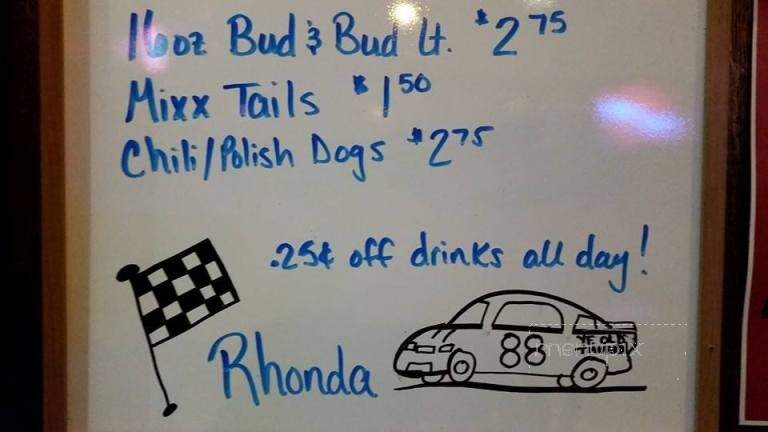 16oz Bud & Bud Lt. $2 75
Mixx Tails $1 50
Chili/Polish Dogs $2 75
.25¢ off drinks all day!
Rhonda
88
YE OLDE